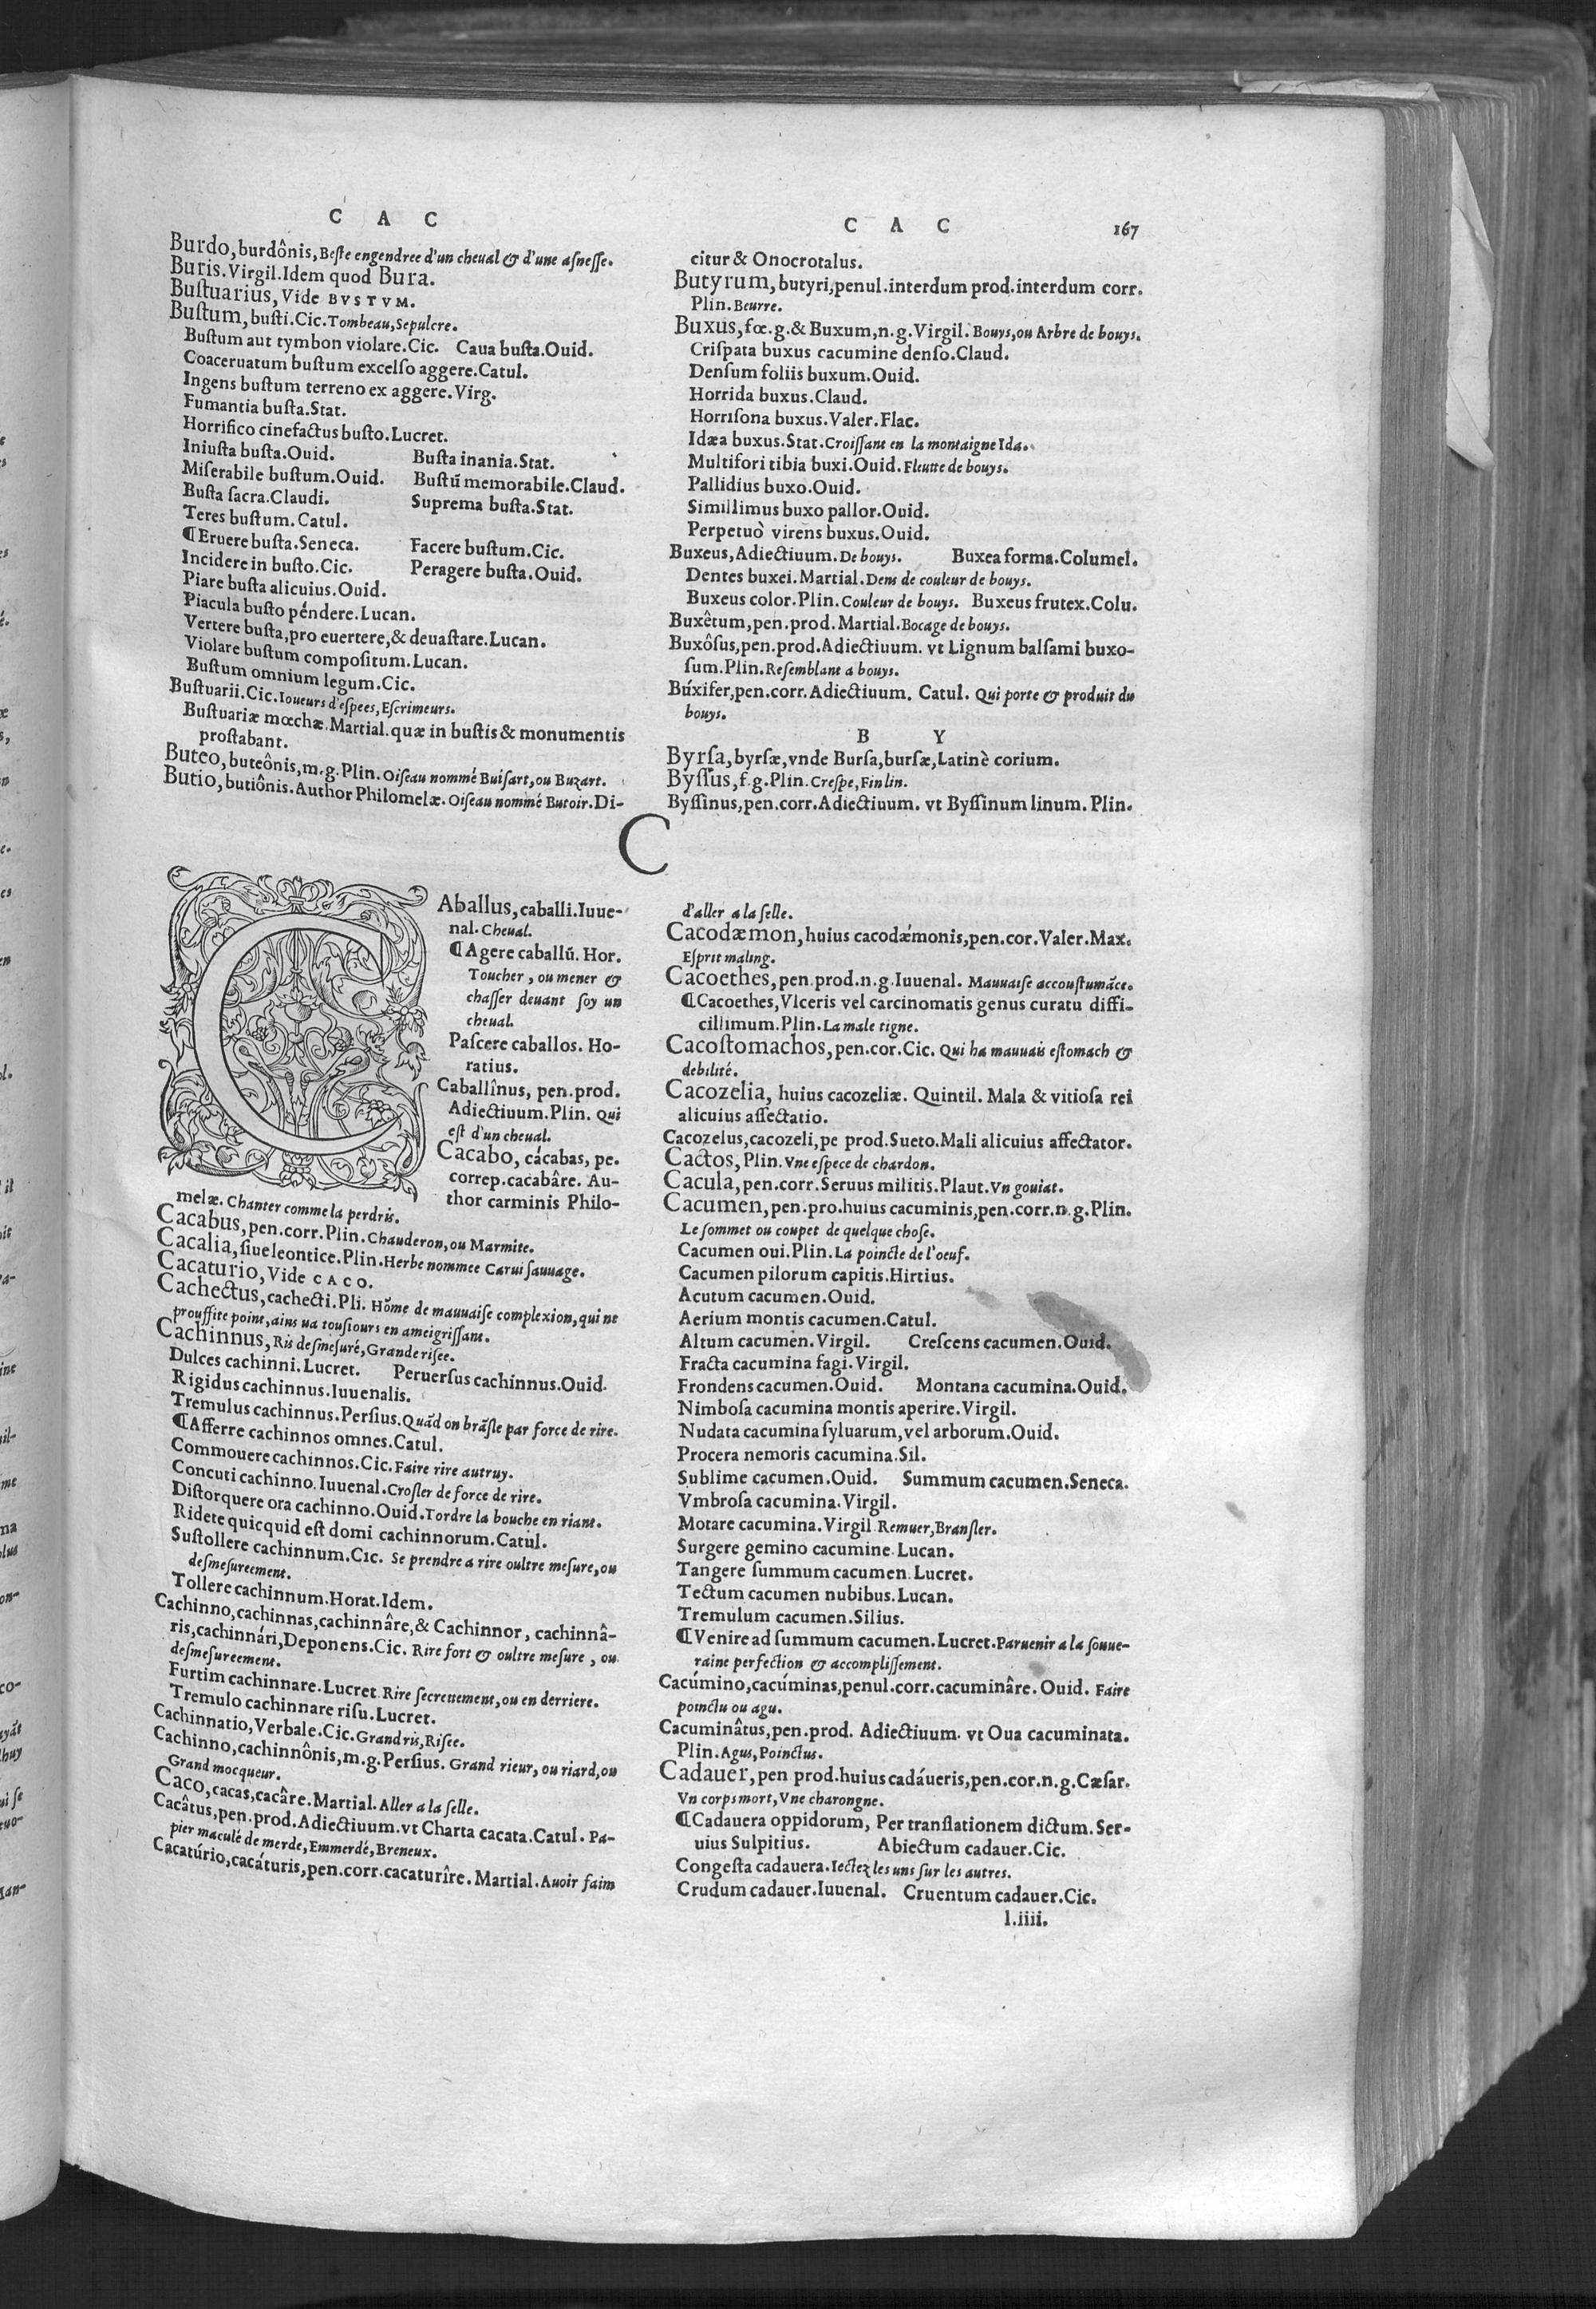 C A C
Burdo, burdônis, Beſte engendree d'un cheual & d'une aſneſſe.
Buris. Virgil. Idem quod Bura.
Buſtuarius, Vide BVSTVM.
Buſtum, buſti. Cic. Tombeau, Sepulcre.
Buſtum aut tymbon violare. Cic. Caua buſta. Ouid.
Coaceruatum buſtum excelſo aggere. Catul.
Ingens buſtum terreno ex aggere. Virg.
Fumantia buſta. Stat.
Horrifico cinefactus buſto. Lucret.
Iniuſta buſta. Ouid. Buſta inania. Stat.
Miſerabile buſtum. Ouid. Buſtū memorabile. Claud.
Buſta ſacra. Claudi. Suprema buſta. Stat.
Teres buſtum. Catul.
¶Eruere buſta. Seneca. Facere buſtum. Cic.
Incidere in buſto. Cic. Peragere buſta. Ouid.
Piare buſta alicuius. Ouid.
Piacula buſto péndere. Lucan.
Vertere buſta, pro euertere, & deuaſtare. Lucan.
Violare buſtum compoſitum. Lucan.
Buſtum omnium legum. Cic.
Buſtuarii. Cic. Ioueurs d'eſpees, Eſcrimeurs.
Buſtuariæ mœchæ. Martial. quæ in buſtis & monumentis
proſtabant.
Buteo, buteônis, m. g. Plin. Oiſeau nommé Buiſart, ou Buzart.
Butio, butiônis. Author Philomelæ. Oiſeau nommé Butoir. Di-
C A C 167
citur & Onocrotalus.
Butyrum, butyri, penul. interdum prod. interdum corr.
Plin. Beurre.
Buxus, fœ. g. & Buxum, n. g. Virgil. Bouys, ou Arbre de bouys.
Criſpata buxus cacumine denſo. Claud.
Denſum foliis buxum. Ouid.
Horrida buxus. Claud.
Horriſona buxus. Valer. Flac.
Idæa buxus. Stat. Croiſſant en la montaigne Ida.
Multifori tibia buxi. Ouid. Fleutte de bouys.
Pallidius buxo. Ouid.
Simillimus buxo pallor. Ouid.
Perpetuò virens buxus. Ouid.
Buxeus, Adiectiuum. De bouys. Buxea forma. Columel.
Dentes buxei. Martial. Dens de couleur de bouys.
Buxeus color. Plin. Couleur de bouys. Buxeus frutex. Colu.
Buxêtum, pen. prod. Martial. Bocage de bouys.
Buxôſus, pen. prod. Adiectiuum. vt Lignum balſami buxo-
ſum. Plin. Reſemblant a bouys.
Búxifer, pen. corr. Adiectiuum. Catul. Qui porte & produit du
bouys.
B Y
Byrſa, byrſæ, vnde Burſa, burſæ, Latinè corium.
Byſſus, f. g. Plin. Creſpe, Fin lin.
Byſſinus, pen. corr. Adiectiuum. vt Byſſinum linum. Plin.
C
CAballus, caballi. Iuue-
nal. Cheual.
¶Agere caballū. Hor.
Toucher, ou mener &
chaſſer deuant ſoy un
cheual.
Paſcere caballos. Ho-
ratius.
Caballînus, pen. prod.
Adiectiuum. Plin. Qui
eſt d'un cheual.
Cacabo, cácabas, pe.
correp. cacabâre. Au-
thor carminis Philo-
melæ. Chanter comme la perdris.
Cacabus, pen. corr. Plin. Chauderon, ou Marmite.
Cacalia, ſiue leontice. Plin. Herbe nommee Carui ſauuage.
Cacaturio, Vide CACO.
Cachectus, cachecti. Pli. Hōme de mauuaiſe complexion, qui ne
prouffite point, ains va touſiours en ameigriſſant.
Cachinnus, Ris deſmeſuré, Grande riſee.
Dulces cachinni. Lucret. Peruerſus cachinnus. Ouid.
Rigidus cachinnus. Iuuenalis.
Tremulus cachinnus. Perſius. Quād on brāſle par force de rire.
¶Afferre cachinnos omnes. Catul.
Commouere cachinnos. Cic. Faire rire autruy.
Concuti cachinno. Iuuenal. Croſler de force de rire.
Diſtorquere ora cachinno. Ouid. Tordre la bouche en riant.
Ridete quicquid eſt domi cachinnorum. Catul.
Suſtollere cachinnum. Cic. Se prendre a rire oultre meſure, ou
deſmeſureement.
Tollere cachinnum. Horat. Idem.
Cachinno, cachinnas, cachinnâre, & Cachinnor, cachinnâ-
ris, cachinnári, Deponens. Cic. Rire fort & oultre meſure, ou
deſmeſureement.
Furtim cachinnare. Lucret. Rire ſecretement, ou en derriere.
Tremulo cachinnare riſu. Lucret.
Cachinnatio, Verbale. Cic. Grand ris, Riſee.
Cachinno, cachinnônis, m. g. Perſius. Grand rieur, ou riard, ou
Grand mocqueur.
Caco, cacas, cacâre. Martial. Aller a la ſelle.
Cacâtus, pen. prod. Adiectiuum. vt Charta cacata. Catul. Pa-
pier maculé de merde, Emmerdé, Breneux.
Cacatúrio, cacáturis, pen. corr. cacaturîre. Martial. Auoir faim
d'aller a la ſelle.
Cacodæmon, huius cacodǽmonis, pen. cor. Valer. Max.
Eſprit maling.
Cacoethes, pen. prod. n. g. Iuuenal. Mauuaiſe accouſtumāce.
¶Cacoethes, Vlceris vel carcinomatis genus curatu diffi-
cillimum. Plin. La male tigne.
Cacoſtomachos, pen. cor. Cic. Qui ha mauuais eſtomach &
debilité.
Cacozelia, huius cacozeliæ. Quintil. Mala & vitioſa rei
alicuius affectatio.
Cacozelus, cacozeli, pe prod. Sueto. Mali alicuius affectator.
Cactos, Plin. Vne eſpece de chardon.
Cacula, pen. corr. Seruus militis. Plaut. Vn gouiat.
Cacumen, pen. pro. huius cacuminis, pen. corr. n. g. Plin.
Le ſommet ou coupet de quelque choſe.
Cacumen oui. Plin. La poincte de l'oeuf.
Cacumen pilorum capitis. Hirtius.
Acutum cacumen. Ouid.
Aerium montis cacumen. Catul.
Altum cacumen. Virgil. Creſcens cacumen. Ouid.
Fracta cacumina fagi. Virgil.
Frondens cacumen. Ouid. Montana cacumina. Ouid.
Nimboſa cacumina montis aperire. Virgil.
Nudata cacumina ſyluarum, vel arborum. Ouid.
Procera nemoris cacumina. Sil.
Sublime cacumen. Ouid. Summum cacumen. Seneca.
Vmbroſa cacumina. Virgil.
Motare cacumina. Virgil. Remuer, Branſler.
Surgere gemino cacumine. Lucan.
Tangere ſummum cacumen. Lucret.
Tectum cacumen nubibus. Lucan.
Tremulum cacumen. Silius.
¶Venire ad ſummum cacumen. Lucret. Paruenir a la ſouue-
raine perfection & accompliſſement.
Cacúmino, cacúminas, penul. corr. cacuminâre. Ouid. Faire
poinctu ou agu.
Cacuminâtus, pen. prod. Adiectiuum. vt Oua cacuminata.
Plin. Agus, Poinctus.
Cadauer, pen prod. huius cadáueris, pen. cor. n. g. Cæſar.
Vn corps mort, Vne charongne.
¶Cadauera oppidorum, Per tranſlationem dictum. Ser-
uius Sulpitius. Abiectum cadauer. Cic.
Congeſta cadauera. Iectez les uns ſur les autres.
Crudum cadauer. Iuuenal. Cruentum cadauer. Cic.
l. iiii.